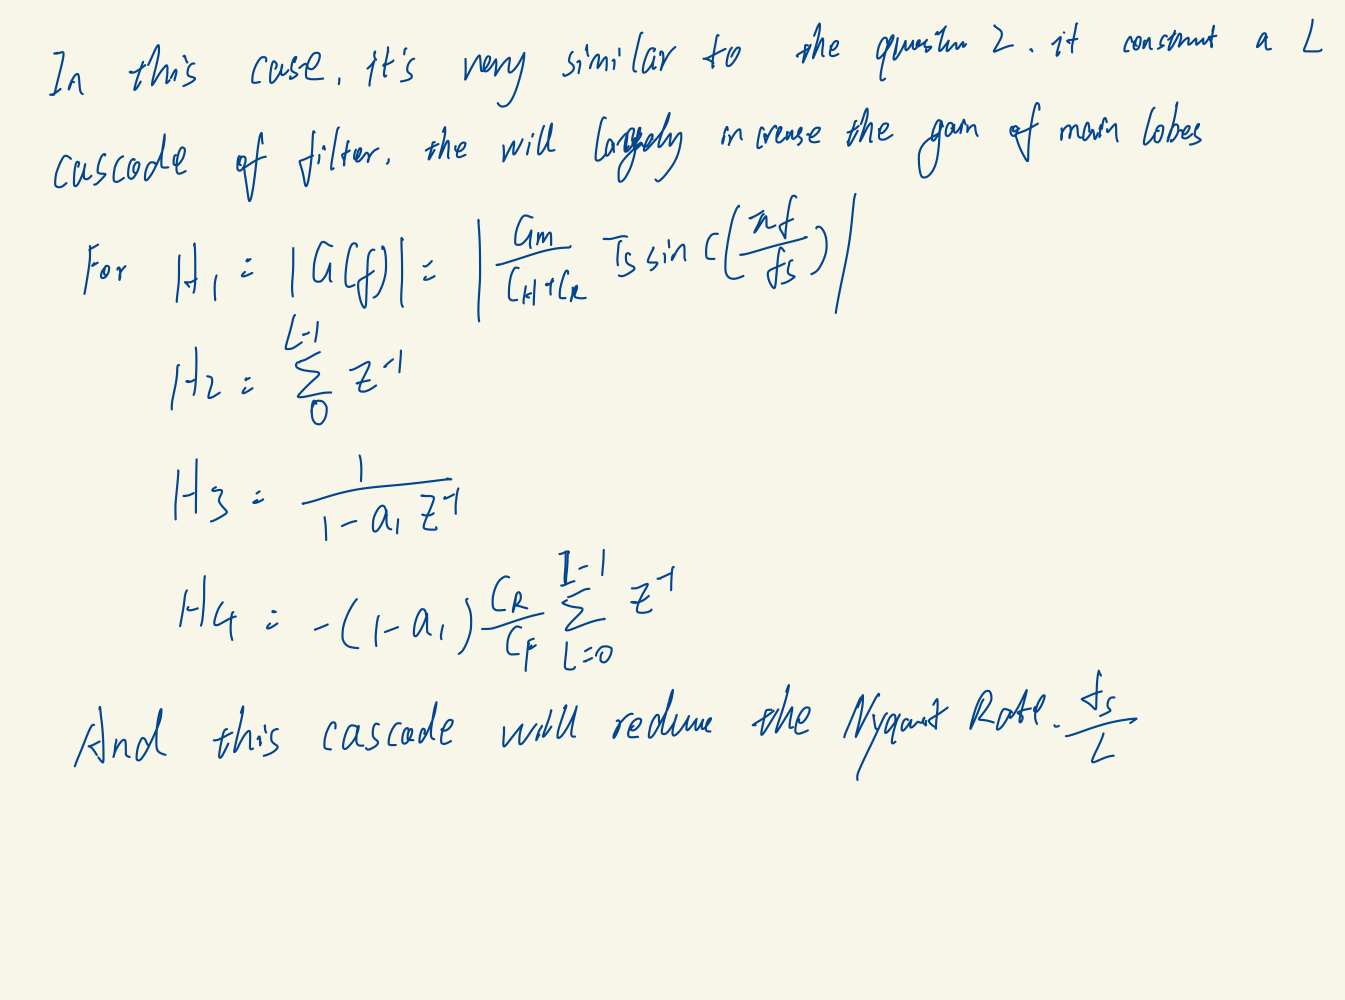 In this case, it's very similar to the question 2. it construct a L
cascade of filter. the will largely increase the gain of main lobes
For H₁ = |G(f)| = | Gm / (C_H + C_R) Ts sinc(πf / fs) |
H₂ = Σ_{0}^{L-1} z⁻¹
H₃ = 1 / (1 - a₁ z⁻¹)
H₄ = -(1 - a₁) C_R / C_F Σ_{L=0}^{I-1} z⁻¹
And this cascade will reduce the Nyquist Rate. fs / L